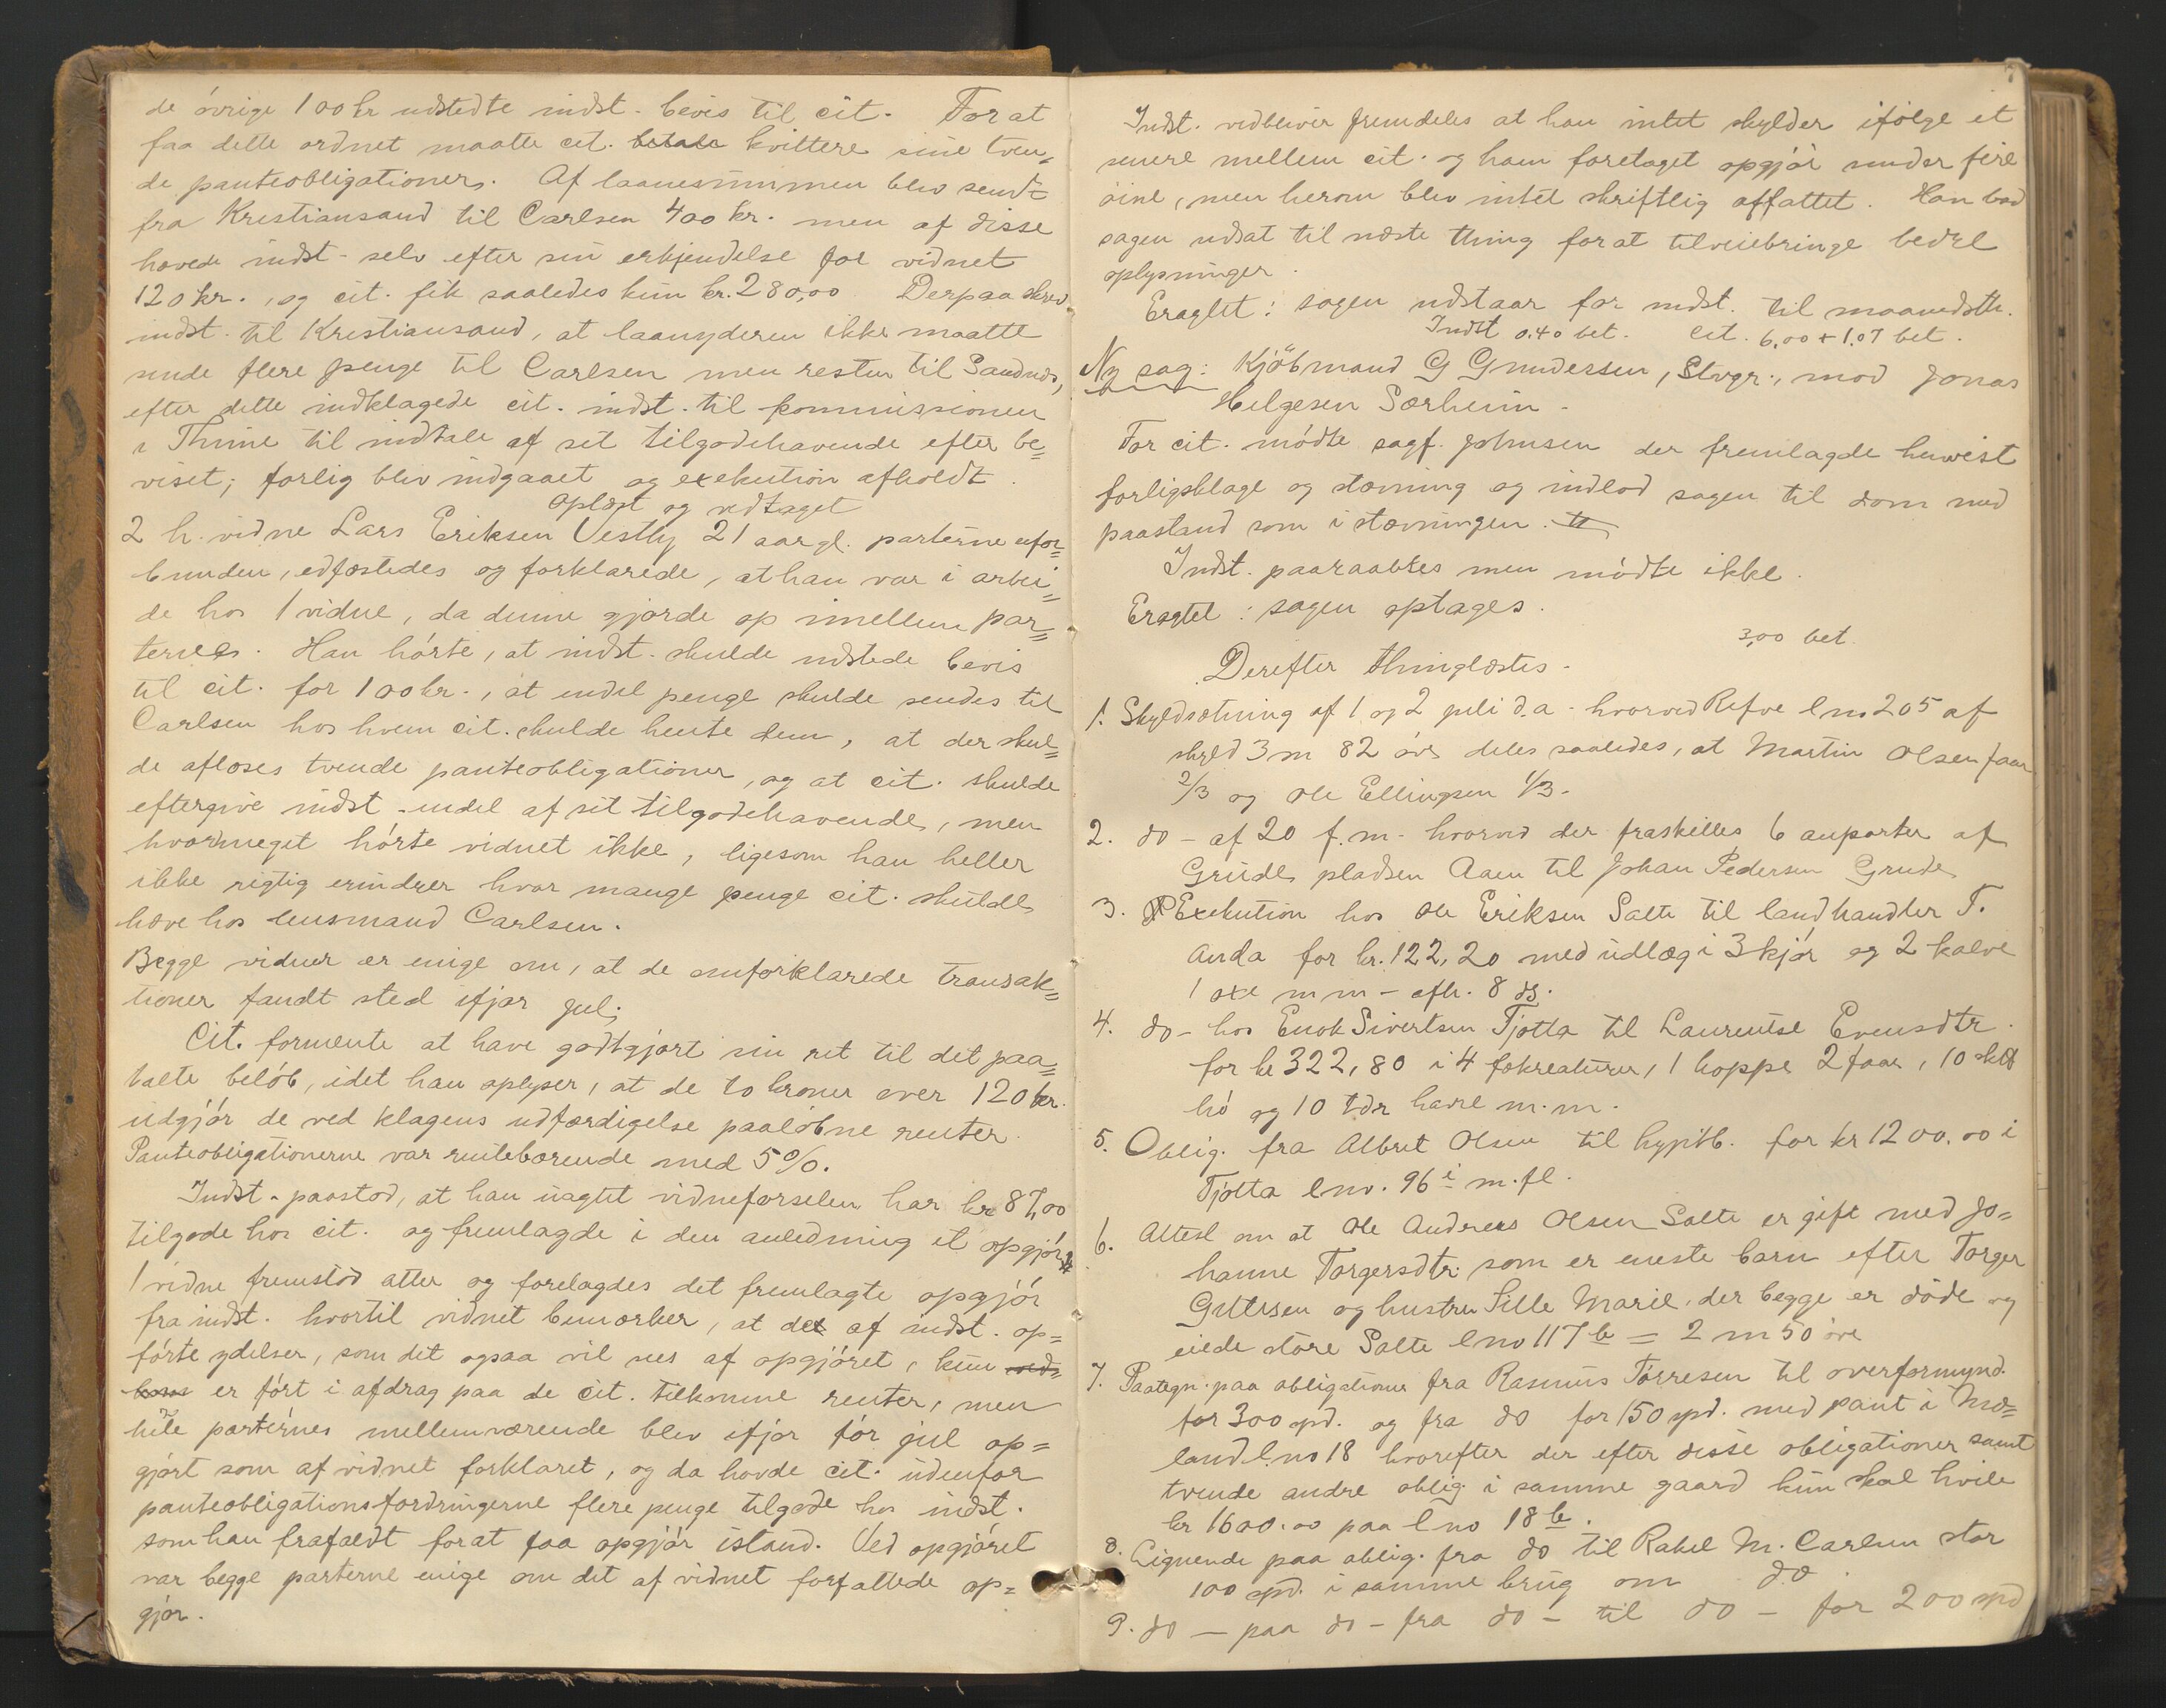 de övrige 100 kr udstedte indst. bevis til cit. For at
faa dette ordnet maatte cit. betale kvittere sine tven-
de panteobligationer. Af laanesummen blev sendt
fra Kristiansand til Carlsen 400 kr. men af disse
hævede indst. selv efter sin erkjendelse for vidnet
120 kr., og cit. fik saaledes kun kr. 280,00 Derpaa skrev
indst. til Kristiansand, at laanyderen ikke maatte
sende flere penge til Carlsen men resten til Sandnes,
efter dette indklagede cit. indst. til kommissionen
i Thime til indtale af sit tilgodehavende efter be=
viset; forlig blev indgaaet og exekution afholdt.
oplæst og vedtaget
2 h. vidne Lars Eriksen Vestly 21 aar gl. parterne ufor=
bunden, edfæstedes og forklarede, at han var i arbei=
de hos 1 vidne, da denne gjorde op imellem par=
terne. Han hørte, at indst. skulde udstede bevis
til cit. for 100 kr., at endel penge skulde sendes til
Carlsen hos hvem cit. skulde hente dem, at der skul=
de afløses tvende panteobligationer, og at cit. skulde
eftergive indst. endel af sit tilgodehavende, men
hvormeget hørte vidnet ikke, ligesom han heller
ikke rigtig erindrer hvor mange penge cit. skulde
hæve hos lensmand Carlsen.
Begge vidner er enige om, at de omforklarede transak=
tioner fandt sted ifjor jul;
Cit. formente at have godtgjort sin ret til det paa=
talte beløb, idet han oplyser, at de 10 kroner over 120 kr.
udgjør de ved klagens udfærdigelse paaløbne renter.
Panteobligationerne var rentebærende med 5%.
Indst. paastod, at han uagtet vidneførselen har kr 87,00
tilgode hos cit. og fremlagde i den anledning et opgjør
1 vidne fremstod atter og forelagdes det fremlagte opgjør
fra indst. hvortil vidnet bemærker, at de af indst. op=
førte ydelser, som det ogsaa vil sees af opgjøret, kun
er ført i afdrag paa de cit. tilkomne renter, men
hele parternes mellemværende blev ifjor før jul op=
gjort som af vidnet forklaret, og da havde cit. udenfor
panteobligationsfordringerne flere penge tilgode hos indst.
som han frafaldt forat faa opgjør istand. Ved opgjøret
var begge parterne enige om det af vidnet forfattede op=
gjør.
7
Indst. vedbliver fremdeles at han intet skylder ifølge et
senere mellem cit. og ham foretaget opgjør under fire
øine, men herom blev intet skriftlig affattet. Han bad
sagen udsat til næste thing forat tilveiebringe bedre
oplysninger.
Eragtet: sagen udstaar for indst. til maanedsth.
Indst 0.40 bet. Cit. 6,00 + 1.07 bet.
Ny sag: Kjøbmand G Gundersen, Stvgr., mod Jonas
Helgesen Sørheim.
For cit. mødte sagf. Johnsen der fremlagde henvist
forligsklage og stævning og indlod sagen til dom med
paastand som i stævningen.
Indst. paaraabtes men mødte ikke.
Eragtet: sagen optages.
3,00 bet.
Derefter thinglæstes.
1. Skyldsætning af 1 og 2 juli d.a. hvorved Refve lno 205 af
skyld 3 m 82 øre deles saaledes, at Martin Olsen faar
2/3 og Ole Ellingsen 1/3.
2. do - af 20 f.m. hvorved der fraskilles 6 anparter af
Grude pladsen Aaen til Johan Pedersen Grude
3. Exekution hos Ole Eriksen Salte til landhandler T.
Anda for kr. 122,20 med udlæg i 3 kjør og 2 kalve
1 oxe m m - afh. 8 ds.
4. do - hos Enok Sivertsen Tjøtta til Laurentse Evensdtr.
for kr 322,80 i 4 fækreaturer, 1 hoppe 2 faar, 10 skt
hø og 10 tdr havre m.m.
5. Oblig. fra Albret Olsen til hyptb. for kr 1200.00 i
Tjøtta lno. 96 i m.fl.
6. Attest om at Ole Andreas Olsen Salte er gift med Jo=
hanne Torgersdtr. som er eneste barn efter Torger
Guttersen og hustru Sille Marie, der begge er døde og
eiede store Salte lno 117 b = 2 m 50 øre
7. Paategn. paa obligationer fra Rasmus Tørresen til overformynd.
for 300 spd. og fra do for 150 spd. med pant i Mø=
land lno 18 hvorefter der efter disse obligationer samt
tvende andre oblig. i samme gaard kun skal hvile
kr 1600.00 paa lno 18 b.
8. Lignende paa oblig. fra do til Rakel M. Carlsen stor
100 spd. i samme brug om do
9. do - paa do - fra do - til do - for 200 spd